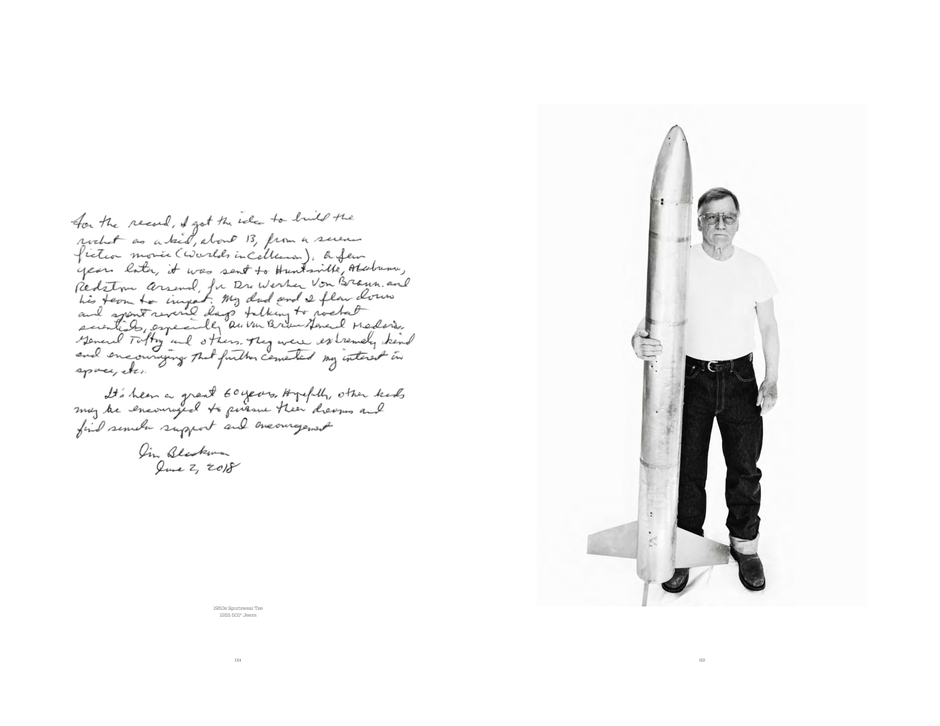 For the record, I got the idea to build the
rocket as a kid, about 13, from a science
fiction movie (Worlds in Collision). A few
years later, it was sent to Huntsville, Alabama,
Redstone Arsenal, for Dr. Werher Von Braun and
his team to inspect. My dad and I flew down
and spent several days talking to rocket
scientists, especially Dr. Von Braun General Medaris,
General Toftoy and others. They were extremely kind
and encouraging that further cemented my interest in
space, etc.
It's been a great 60 years. Hopefully, other kids
may be encouraged to pursue their dreams and
find similar support and encouragement
Jim Blackmon
June 2, 2018
1950s Sportswear Tee
501® Jeans